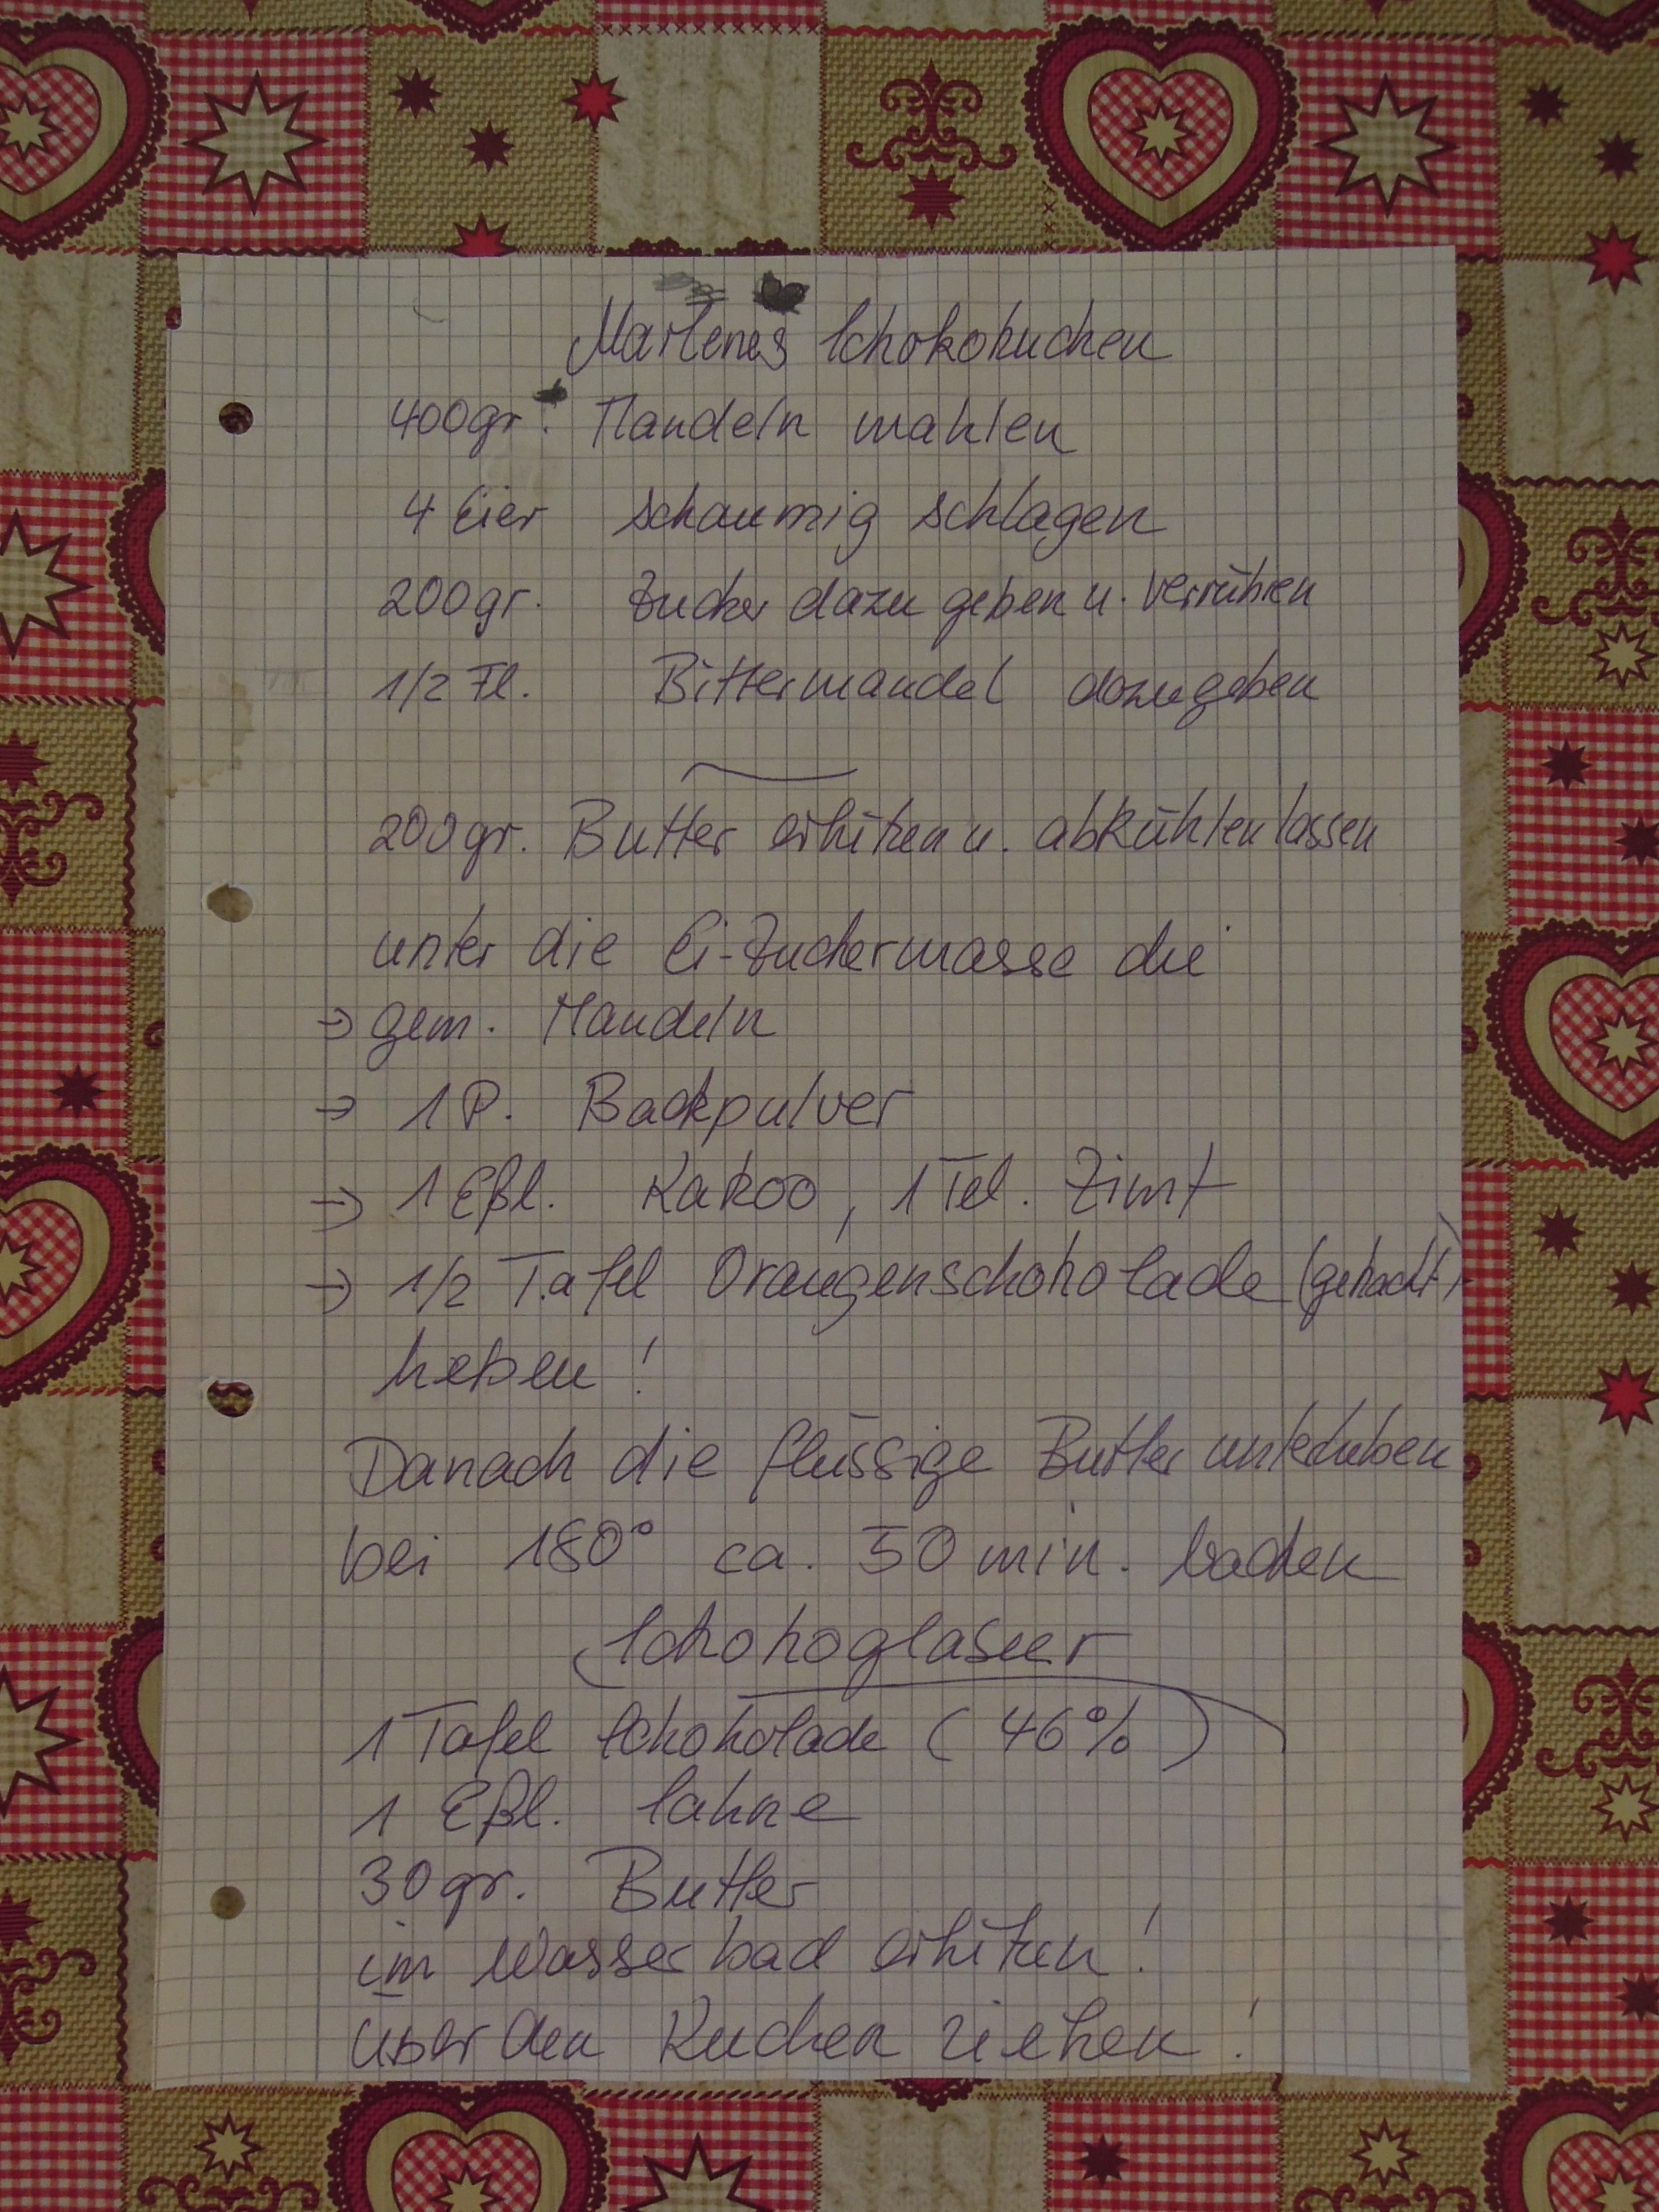 Marlenes Schokokuchen
400gr. Mandeln mahlen
4 Eier schaumig schlagen
200gr. Zucker dazu geben u. verrühren
1/2 Fl. Bittermandel dazugeben
200gr. Butter erhitzen u. abkühlen lassen
unter die Ei-Zuckermasse die
→ gem. Mandeln
→ 1 P. Backpulver
→ 1 Eßl. Kakao, 1 Teel. Zimt
→ 1/2 Tafel Orangenschokolade (gehackt)
heben!
Danach die flüssige Butter unterheben
bei 180° ca. 50 min. backen
Schokoglasur
1 Tafel Schokolade (46%)
1 Eßl. Sahne
30gr. Butter
im Wasserbad erhitzen!
über den Kuchen ziehen!